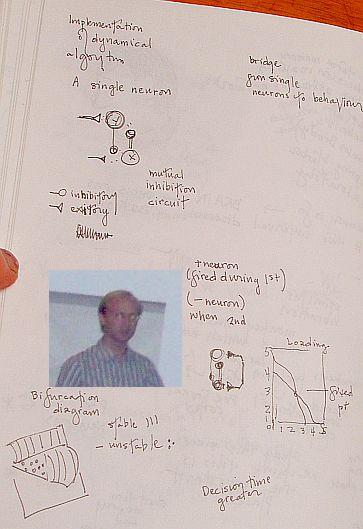 Implementation
of dynamical
algorytms
A single neuron
bridge
from single
neurons to behaviour
mutual
inhibition
circuit
inhibitory
exitory
+neuron
(fired during 1st)
(-neuron)
when 2nd
Loading
5
4
3
2
1
0 1 2 3 4 5
fixed
pt
Bifurcation
diagram
stable
- unstable
Decision time
greater